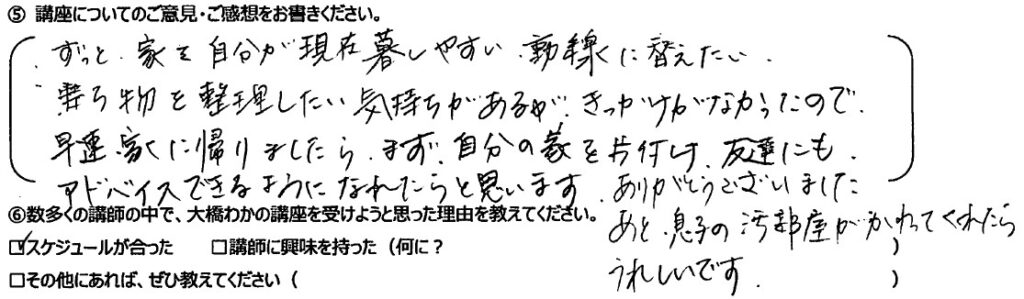 ⑤ 講座についてのご意見・ご感想をお書きください。
ずっと、家を自分が現在暮しやすい動線に替えたい、
持ち物を整理したい気持ちがあるが、きっかけがなかったので、
早速家に帰りましたら、まず、自分の家を片付け、友達にも、
アドバイスできるようになれたらと思います。ありがとうございました
⑥数多くの講師の中で、大橋わかの講座を受けようと思った理由を教えてください。
あと、息子の汚部屋がかわってくれたら
☑スケジュールが合った □講師に興味を持った (何に? )
うれしいです。
□その他にあれば、ぜひ教えてください ( )